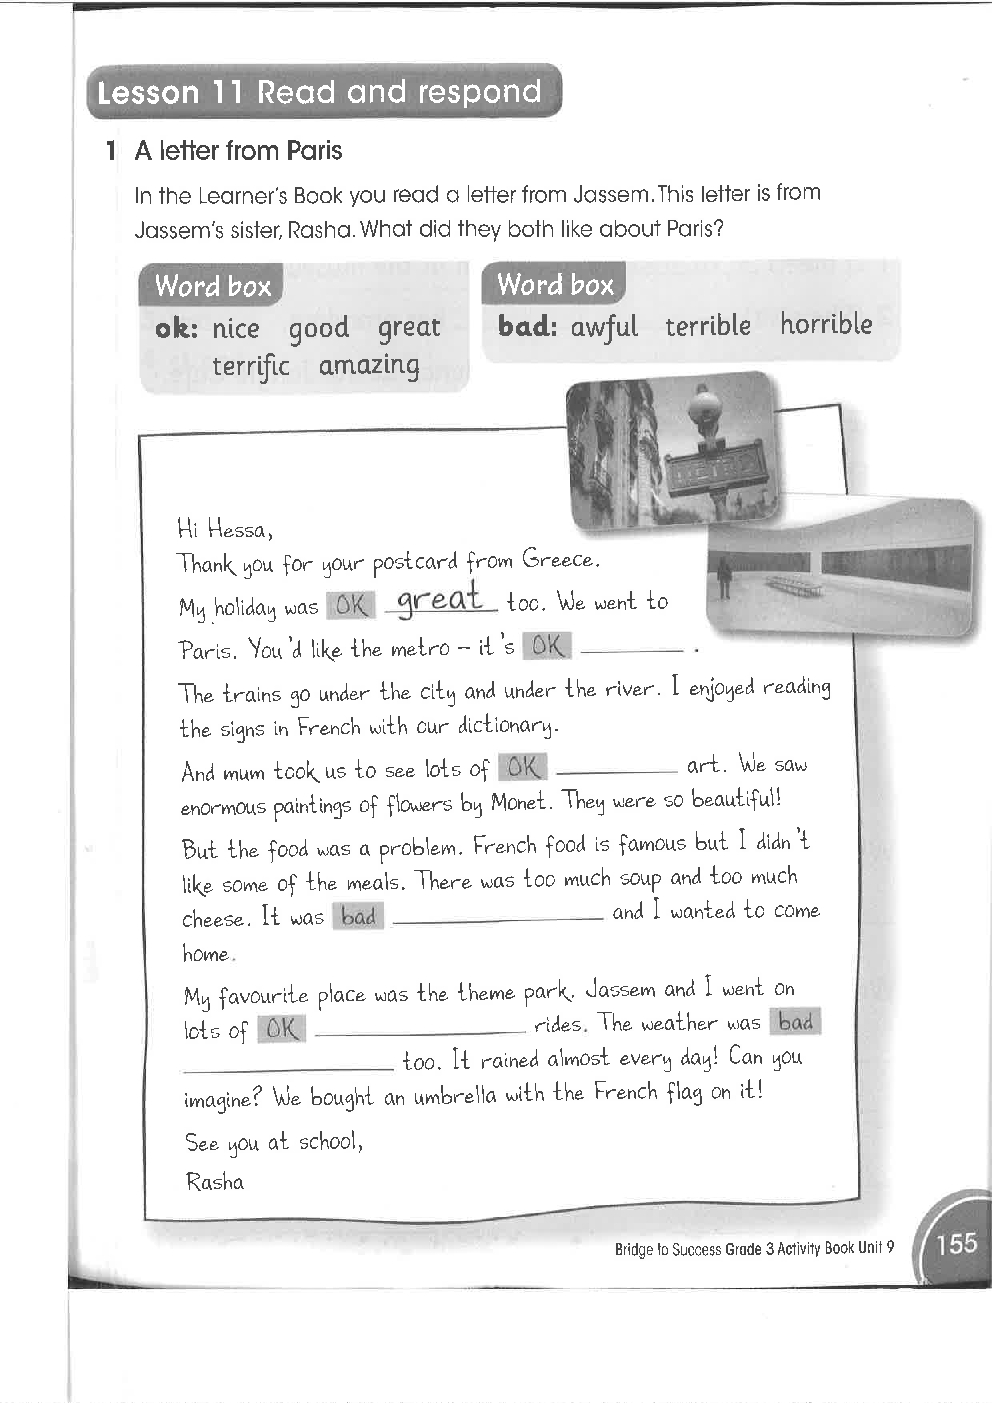 Lesson 11 Read and respond
1 A letter from Paris
In the Learner's Book you read a letter from Jassem. This letter is from
Jassem's sister, Rasha. What did they both like about Paris?
Word box
ok: nice good great
terrific amazing
Word box
bad: awful terrible horrible
METRO
Hi Hessa,
Thank you for your postcard from Greece.
My holiday was OK great too. We went to
Paris. You'd like the metro – it's OK __________ .
The trains go under the city and under the river. I enjoyed reading
the signs in French with our dictionary.
And mum took us to see lots of OK __________ art. We saw
enormous paintings of flowers by Monet. They were so beautiful!
But the food was a problem. French food is famous but I didn't
like some of the meals. There was too much soup and too much
cheese. It was bad __________ and I wanted to come
home.
My favourite place was the theme park. Jassem and I went on
lots of OK __________ rides. The weather was bad
__________ too. It rained almost every day! Can you
imagine? We bought an umbrella with the French flag on it!
See you at school,
Rasha
Bridge to Success Grade 3 Activity Book Unit 9 155